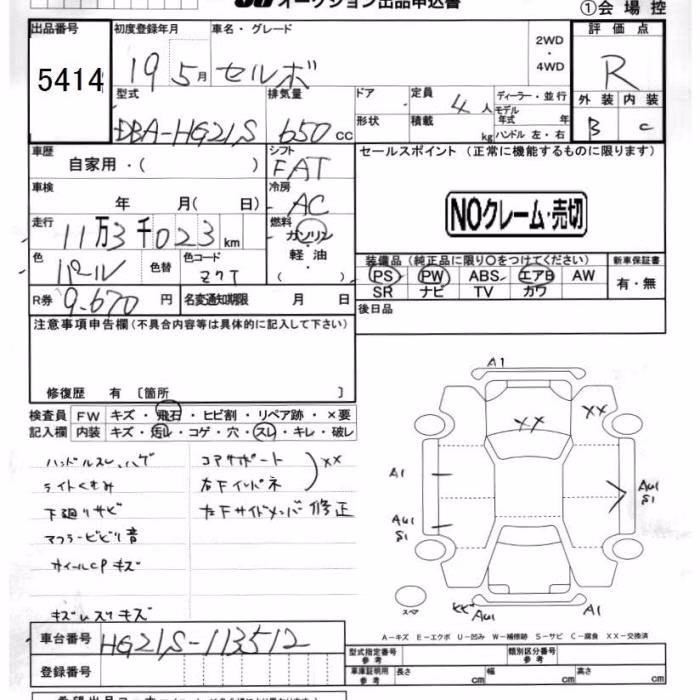 オークション出品申込書
①会場控
出品番号 初度登録年月 車名・グレード 2WD・4WD 評価点
5414 19 5月 セルボ R
型式 排気量 ドア 定員 4人 ディーラー・並行 外装 内装
モデル年式 年
DBA-HG21S 650cc 形状 積載 kg ハンドル 左・右 B C
車歴 シフト セールスポイント (正常に機能するものに限ります)
自家用・( ) FAT
車検 冷房
年 月( 日) AC NOクレーム・売切
走行 燃料
11万3千023km ガソリン
軽油
・
( )
色 パール 色替 色コード Z7T
装備品(純正品に限り○をつけてください) 新車保証書
PS PW ABS エアB AW 有・無
SR ナビ TV カワ
R券 9.670円 名変通知期限 月 日 後日品
注意事項申告欄(不具合内容等は具体的に記入して下さい)
修復歴 有 〔箇所 〕
検査員 FW キズ・飛石・ヒビ割・リペア跡・×要
記入欄 内装 キズ・汚れ・コゲ・穴・スレ・キレ・破レ
ハンドルスレ、ハゲ コアサポート
ライトくもみ 右フインパネ XX
下廻りサビ 右フサイドメンバ 修正
マフラービビリ音
ホイールCPキズ
キズレスリキズ
A1
XX XX
A1 AU1
S1
AU1
S1
スペア XX AU1 A1
A-キズ E-エクボ U-凹み W-補修跡 S-サビ C-腐食 XX-交換済
車台番号 HG21S-113512 型式指定番号 参考 類別区分番号 参考
登録番号 車庫証明用 参考 長さ cm 幅 cm 高さ cm